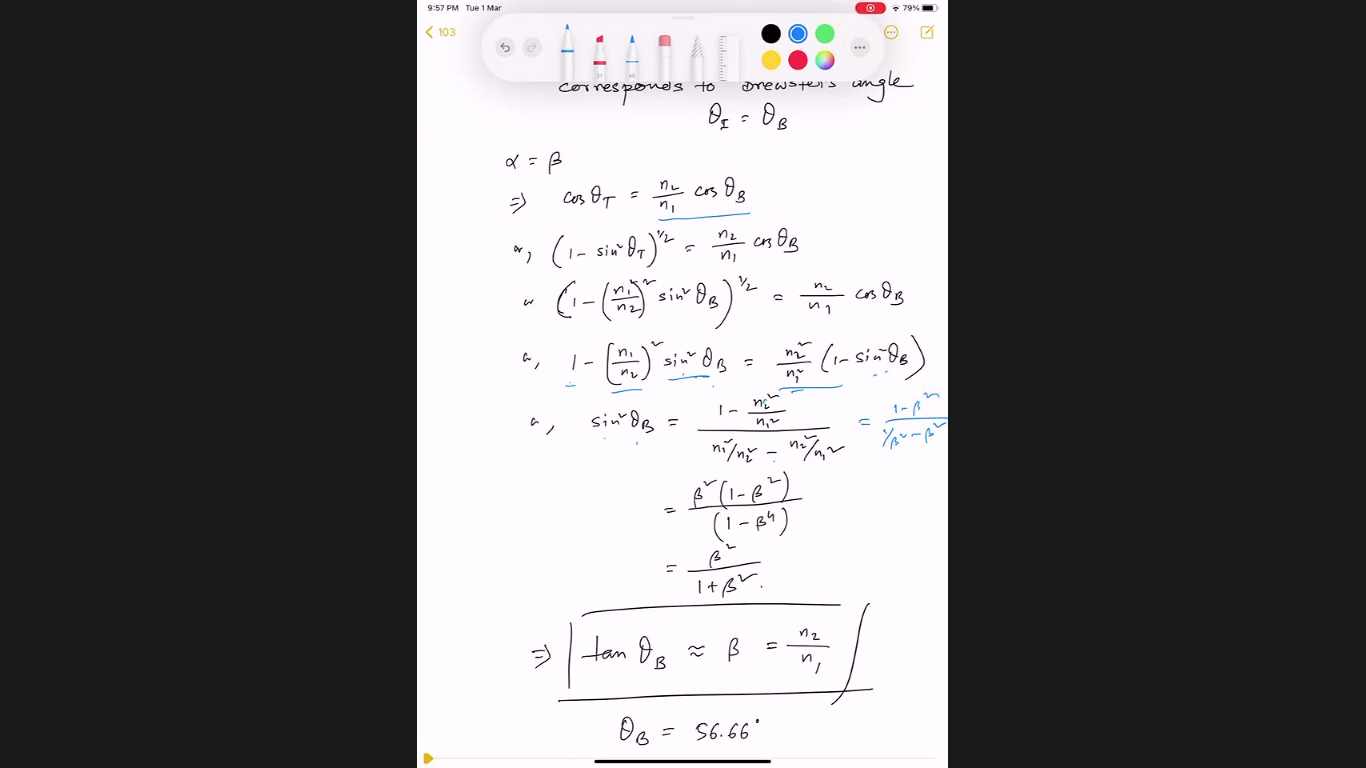 9:57 PM Tue 1 Mar
79%
103
corresponds to Brewster's angle
θ_I = θ_B
α = β
⇒ cosθ_T = n₂/n₁ cosθ_B
or, (1 - sin²θ_T)^1/2 = n₂/n₁ cosθ_B
or (1 - (n₁/n₂)² sin²θ_B)^1/2 = n₂/n₁ cosθ_B
or, 1 - (n₁/n₂)² sin²θ_B = n₂²/n₁² (1 - sin²θ_B)
or, sin²θ_B = (1 - n₂²/n₁²)/(n₁²/n₂² - n₂²/n₁²) = (1-β²)/(1/β² - β²)
= β²(1-β²)/(1-β⁴)
= β²/(1+β²).
⇒ tan θ_B ≈ β = n₂/n₁
θ_B = 56.66°